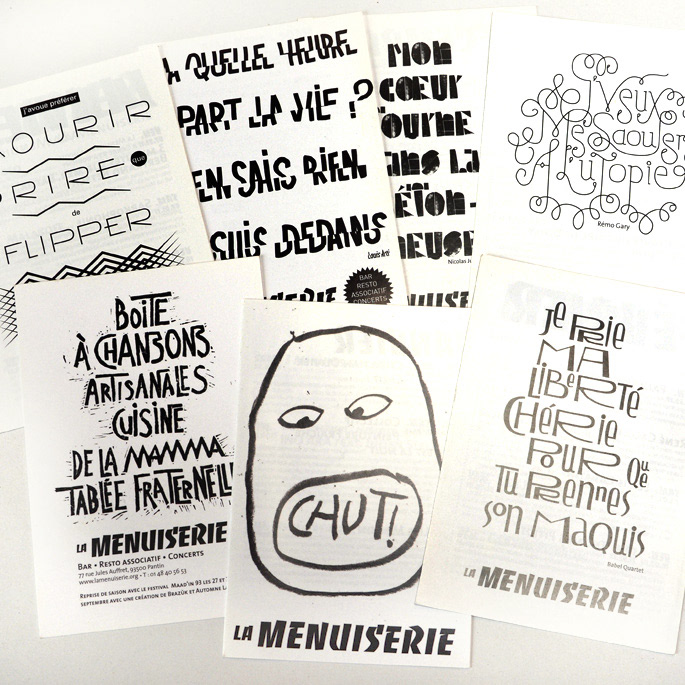 j'avoue préférer
OURIR
RIRE que
de
FLIPPER
À QUELLE HEURE
PART LA VIE ?
EN SAIS RIEN
SUIS DEDANS
Louis Arti
BAR
RESTO
ASSOCIATIF
CONCERTS
Mon
CŒUR
OURNE
ans La
ÉTON-
NEUSE
Nicolas Ju
MENUISE
J'Veux
Me Saouler
À l'Utopie
Rémo Gary
BOÎTE
À CHANSONS
ARTISANALES
CUISINE
DE LA MAMMA
TABLÉE FRATERNELL
LA MENUISERIE
BAR • RESTO ASSOCIATIF • CONCERTS
77 rue Jules Auffret, 93500 Pantin
www.lamenuiserie.org • T : 01 48 40 56 53
REPRISE DE SAISON AVEC LE FESTIVAL MAAD'IN 93 LES 27 ET
SEPTEMBRE AVEC UNE CRÉATION DE BRAZÜK ET AUTOMNE
CHUT!
LA MENUISERIE
Je PRie
MA
LiBeRTé
CHéRie
POUR Que
TU PRennes
son MAQUIS
Babel Quartet
LA MENUISERIE